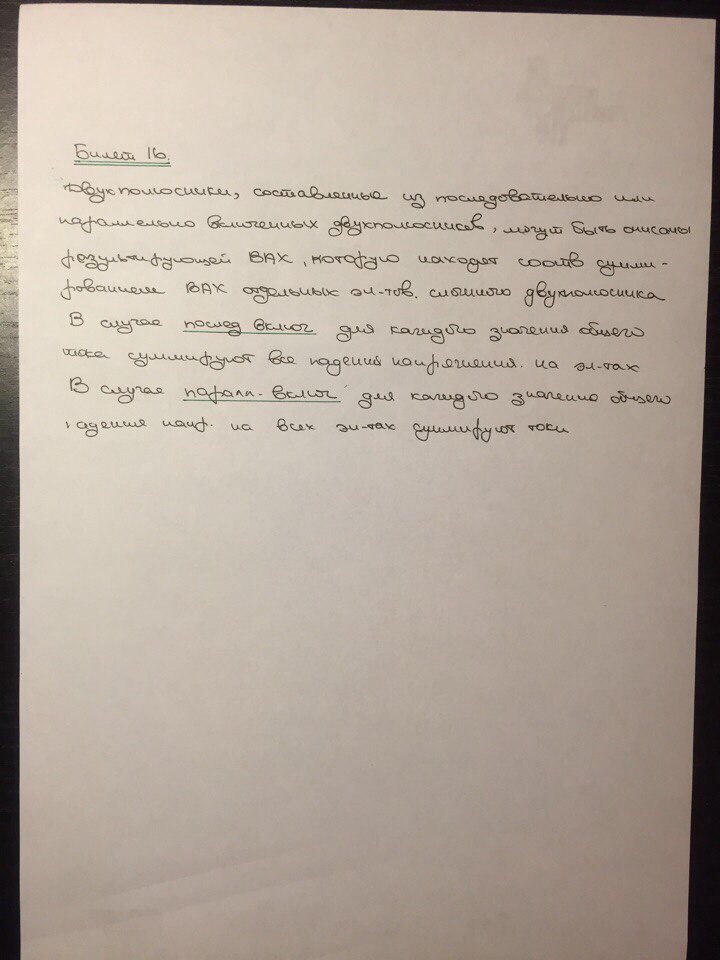 Билет 16.
Двухполюсники, составленные из последовательно или
параллельно включенных двухполюсников, могут быть описаны
результирующей ВАХ, которую находят соотв сумми-
рованием ВАХ отдельных эл-тов. сложного двухполюсника
В случае послед включ для каждого значения общего
тока суммируют все падения напряжения. на эл-тах
В случае паралл. включ для каждого значения общего
падения напр. на всех эл-тах суммируют токи